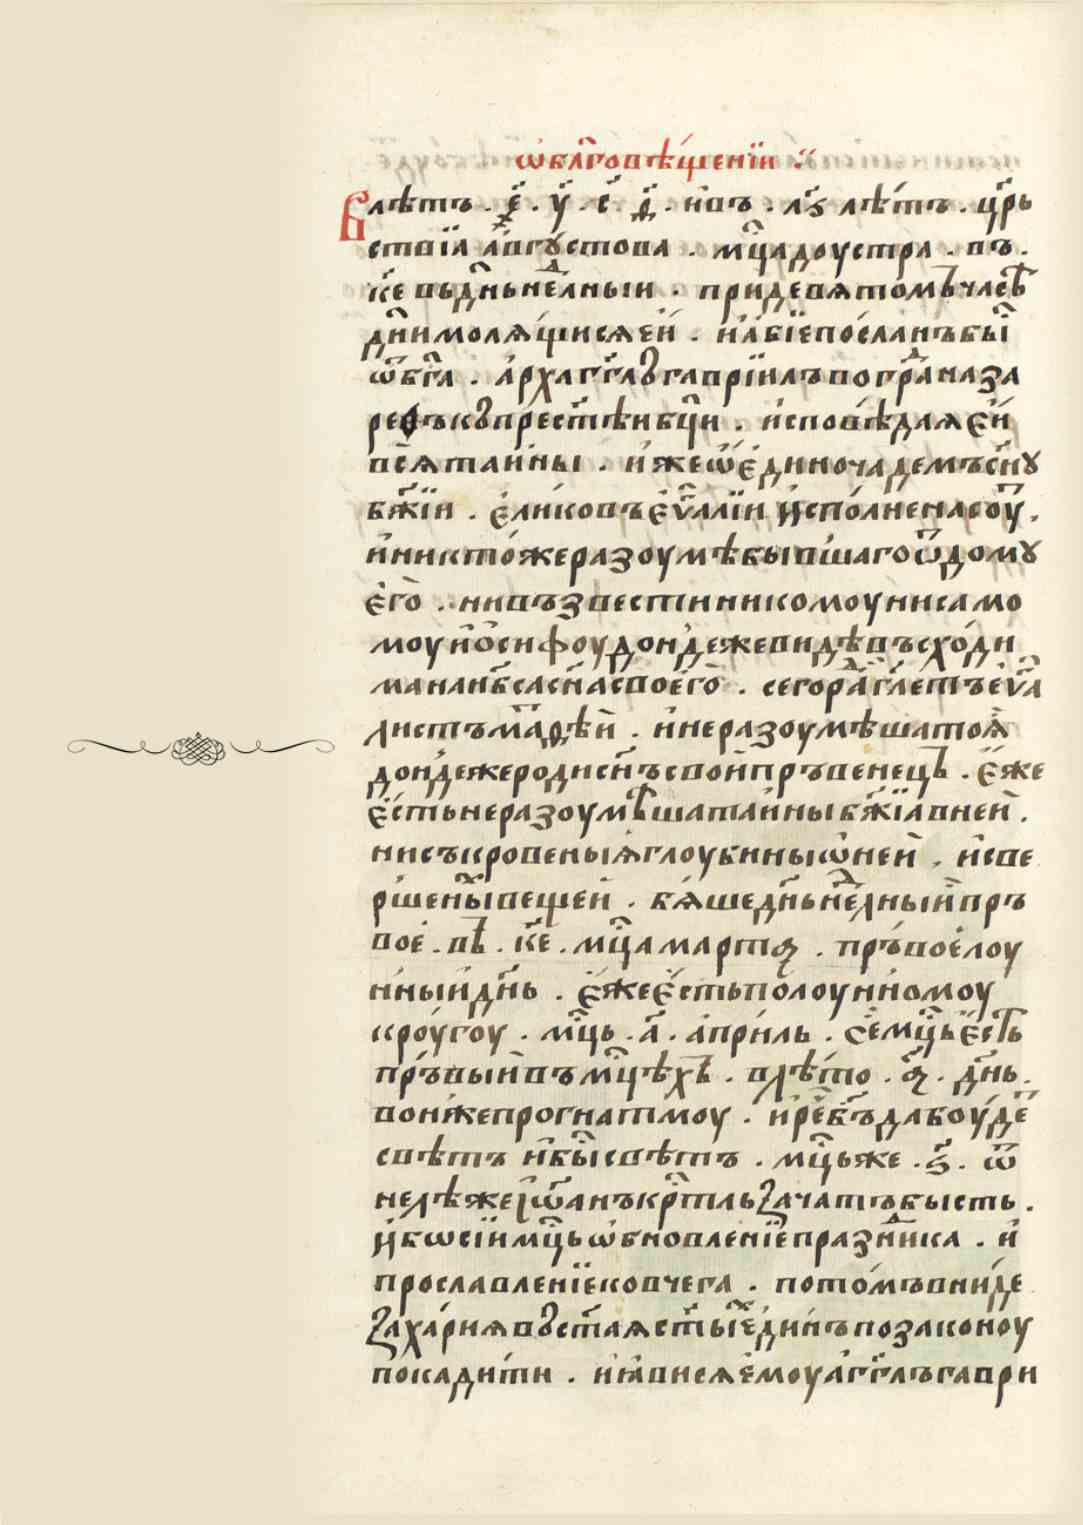 ѡ бл҃говѣщенїи
В лѣтъ . ҂е҃ . у҃ . с҃ . д҃ . и въ . л҃ѕ лѣтъ . цр҃ь
ствїа августова . мц҃а доустра . въ .
к҃е вь дн҃ь нелныи . при девятомъ часѣ
дн҃и молящися ей . и абїе посланъ бы
ѿ бг҃а . архаггл҃ъ гаврїилъ во град назa
ретъ къ престѣи бц҃и . исповѣдая ей
вся тайны . иже ѿ единочадемъ сн҃у
бж҃їи . елико въ еѵлїи исполнена соу .
и никтоже разоумѣ бывшаго ѿ дому
его . ни възвести никомоу ни само
моу иосифоу дондеже видѣ въсходи
ма на нб҃са сн҃а своего . сего ра гл҃етъ еѵа
листъ матѳѣй . и не разоумѣша тоя
дондеже роди сн҃ъ свой пръвенець . еже
есть не разоумѣша тайны бж҃їа в ней .
ни съкровеныя глоубины ѡ ней . и све
ршены вещей . бяше дн҃ь нелный пръ
вое . въ . к҃е . мц҃а марта . пръвое лоу
нный дн҃ь . еже есть по лоунномоу
кроугоу . мц҃ь . а҃ . априль . сей мц҃ь есть
пръвый въ мц҃ѣхъ . в лѣто . а҃ . дн҃ь .
вонже прогна тмоу . и ре бг҃ъ да боуде
свѣтъ и бы свѣтъ . мц҃ь же . ѕ҃ . ѿ
нелѣже iѡанъ кр҃тль зачатъ бысть .
и бѡ сїи мц҃ь ѡбновленїе празника . и
прославленїе ковчега . потомъ вниде
захария въ ст҃ая ст҃ых единъ по законоу
покадити . и явися емоу аггл҃ъ гаври